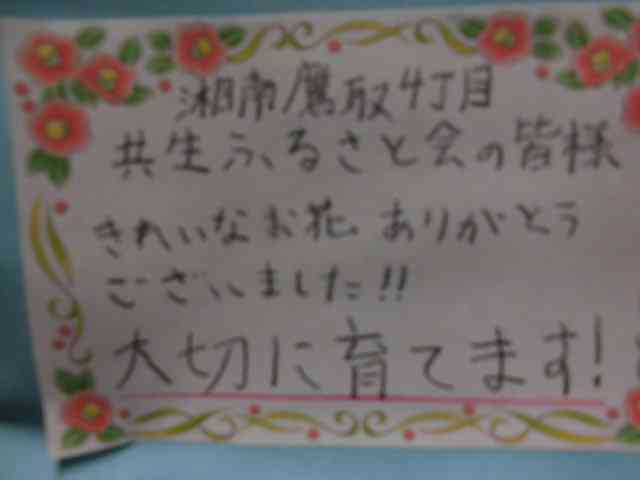 湘南鷹取4丁目
共生ふるさと会の皆様
きれいなお花 ありがとう
ございました!!
大切に育てます!